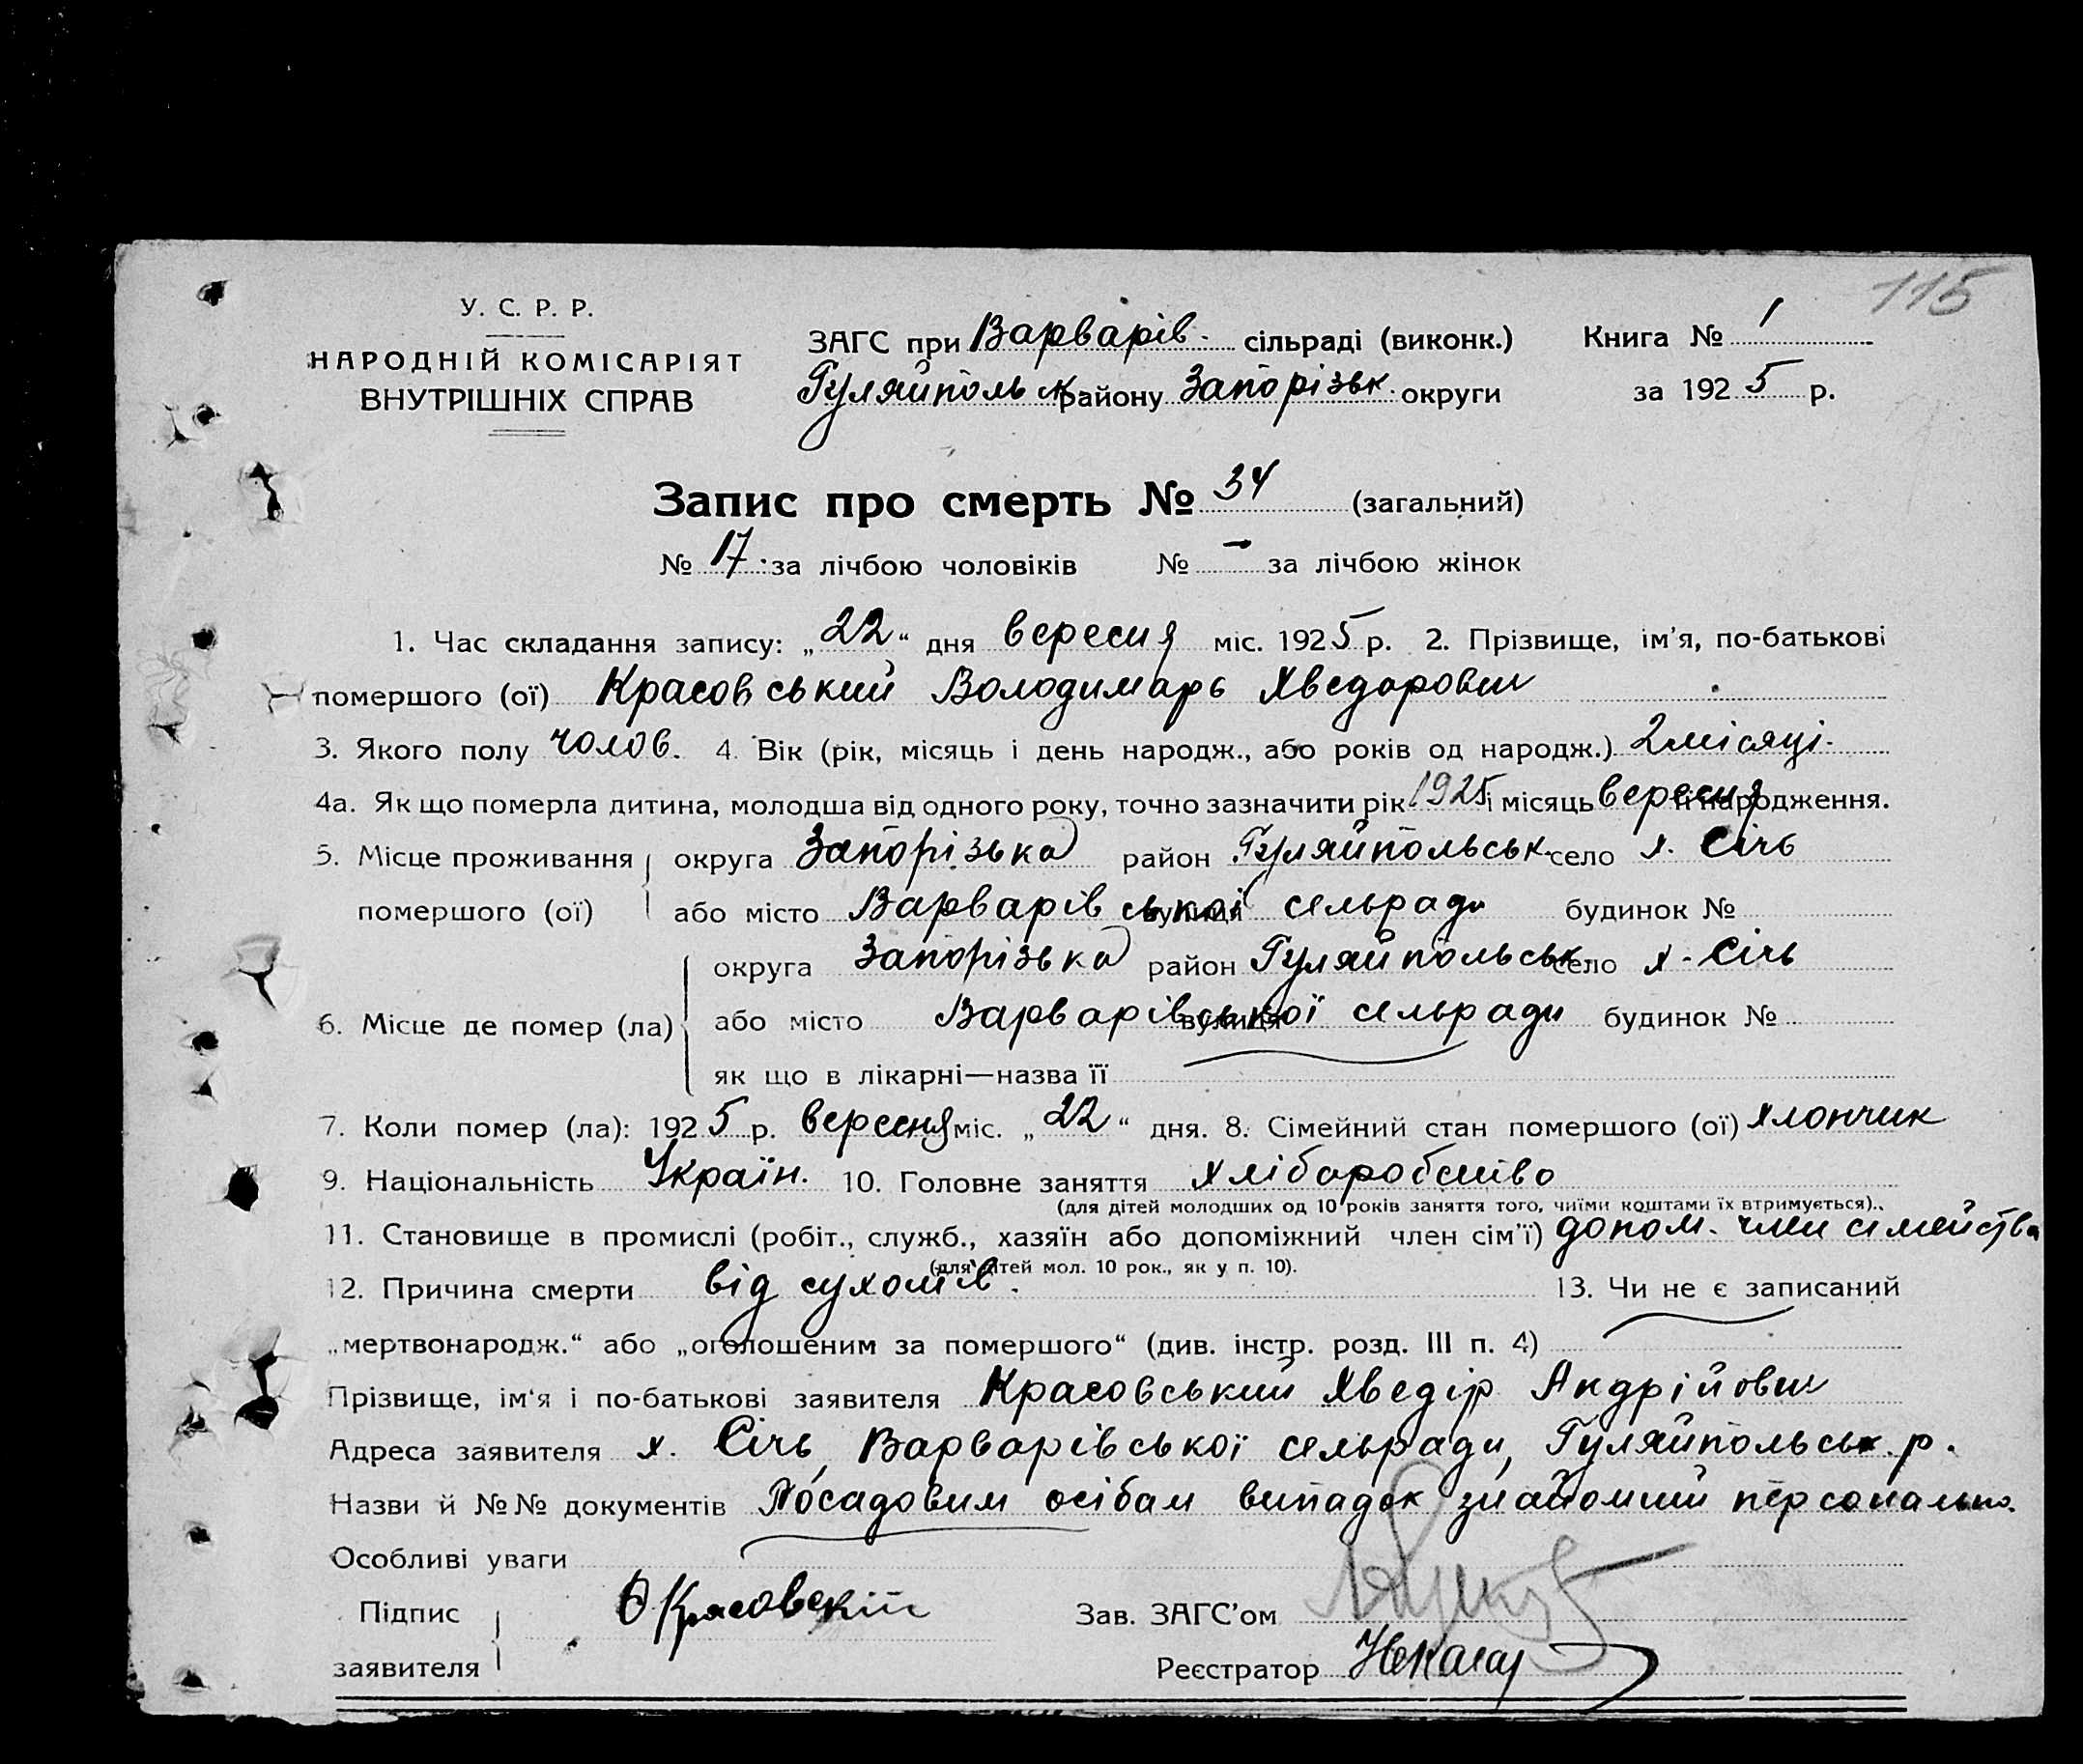 115
У. С. Р. Р.
НАРОДНІЙ КОМІСАРІЯТ
ВНУТРІШНІХ СПРАВ
ЗАГС при Варварів. сільраді (виконк.) Книга № 1
Гуляйпольськ району Запорізьк. округи за 1925 р.
Запис про смерть № 34 (загальний)
№ 17 за лічбою чоловіків № – за лічбою жінок
1. Час складання запису: „22“ дня вересня міс. 1925 р. 2. Прізвище, ім'я, по-батькові
помершого (ої) Красовський Володимарь Хведорович
3. Якого полу чолов. 4. Вік (рік, місяць і день народж., або років од народж.) 2 місяці.
4а. Як що померла дитина, молодша від одного року, точно зазначити рік 1925 і місяць вересня її народження.
5. Місце проживання округа Запорізька район Гуляйпольськ. село х. Січь
помершого (ої) або місто Варварівської вулиця сельради будинок №
округа Запорізька район Гуляйпольськ. село х. Січь
6. Місце де помер (ла) або місто Варварівської вулиця сельради будинок №
як що в лікарні—назва її
7. Коли помер (ла): 1925 р. вересня міс. „22“ дня. 8. Сімейний стан помершого (ої) хлопчик
9. Національність Україн. 10. Головне заняття хліборобство
(для дітей молодших од 10 років заняття того, чиїми коштами їх втримується).
11. Становище в промислі (робіт., служб., хазяїн або допоміжний член сім'ї) допом. член семейства
(для дітей мол. 10 рок., як у п. 10).
12. Причина смерти від сухотів. 13. Чи не є записаний
„мертвонародж.“ або „оголошеним за помершого“ (див. інстр. розд. III п. 4)
Прізвище, ім'я і по-батькові заявителя Красовський Хведір Андрійович
Адреса заявителя х. Січь, Варварівської сельради, Гуляйпольськ. р.
Назви й №№ документів Посадовим осібам випадок знайомий персонально.
Особливі уваги
Підпис Ѳ Красовскій Зав. ЗАГС'ом
заявителя Реєстратор